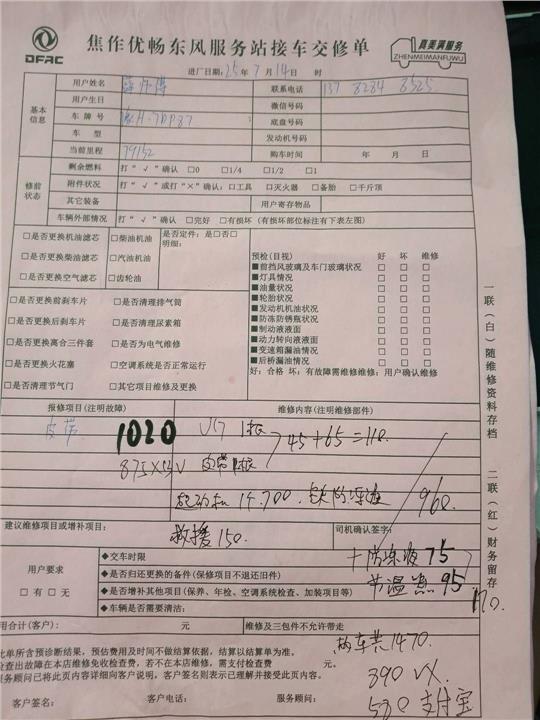 DFAC
焦作优畅东风服务站接车交修单
真美满服务
ZHENMEIMANFUWU
进厂日期:25年7月14日 时
基本信息
用户姓名 联系电话 137 8284 8525
用户生日 微信号码
车牌号 底盘号码
车型 发动机号码
当前里程 79152 购车时间 年 月 日
修前状态
剩余燃料 打“√”确认 □0 □1/4 □1/2 □1
附件状况 打“√”或打“×”确认:□工具 □灭火器 □备胎 □千斤顶
其它装备 用户寄存物品
车辆外部情况 打“√”确认 □完好 □有损坏(有损坏部位标注有下表左图)
□是否更换机油滤芯 □柴油机油 是否定件:是□否□
明细:
□是否更换柴油滤芯 □汽油机油
□是否更换空气滤芯 □齿轮油
□是否更换前刹车片 □是否清理排气筒
□是否更换后刹车片 □是否清理尿素箱
□是否更换离合三件套 □是否为电气维修
□是否更换火花塞 □空调系统是否正常运行
□是否清理节气门 □其它项目维修及更换
预检(目视) 好 坏 维修
■前挡风玻璃及车门玻璃状况 □ □ □
■灯具情况 □ □ □
■油量状况 □ □ □
■轮胎状况 □ □ □
■发动机机油状况 □ □ □
■防冻防锈瓶状况 □ □ □
■制动液液面 □ □ □
■动力转向液液面 □ □ □
■变速箱漏油情况 □ □ □
■后桥漏油情况 □ □ □
好:合格 坏:有故障需维修维修:用户确认维修
报修项目(注明故障) 维修内容(注明维修部件)
皮带 1020 1根 45+65=110.
875 皮带1根
起动机 14.700. 960.
建议维修项目或增补项目: 救援150. 司机确认签字:
+防冻液75
节温器95
170.
用户要求
□有 □无
◆交车时限
◆是否归还更换的备件(保修项目不退还旧件)
◆是否增补其他项目(保养、年检、空调系统检查、加装项目等)
◆车辆是否需要清洁:
用合计(客户): 元 维修及三包件不允许带走
此单所含预诊断结果,预估费用及时间不做结算依据,结算以结算单为准。
检查出故障在本店维修免收检查费,若不在本店维修,需支付检查费 元。
服务顾问已将此页内容详细向客户说明,客户签名则表示已理解并接受此页内容。
客户签名: 客户电话: 服务顾问:
两车共1470.
890 VX.
580 支付宝
一联(白)随维修资料存档
二联(红)财务留存